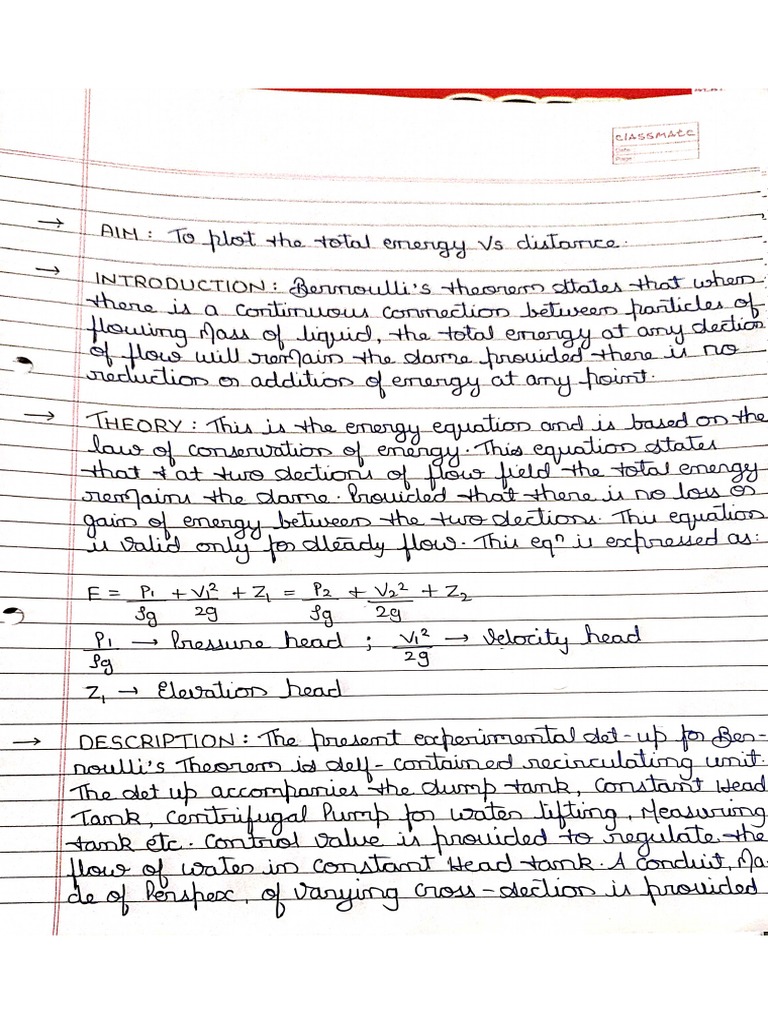 classmate
Date
Page
→ AIM : To plot the total energy Vs distance.
→ INTRODUCTION : Bernoulli's theorem states that when
there is a continuous connection between particles of
flowing Mass of liquid, the total energy at any section
of flow will remain the same provided there is no
reduction or addition of energy at any point.
→ THEORY : This is the energy equation and is based on the
law of conservation of energy. This equation states
that at two sections of flow field the total energy
remains the same. Provided that there is no loss or
gain of energy between the two sections. This equation
is valid only for steady flow. This eqⁿ is expressed as:
E = P₁/ρg + V₁²/2g + Z₁ = P₂/ρg + V₂²/2g + Z₂
P₁/ρg → Pressure head ; V₁²/2g → Velocity head
Z₁ → Elevation head
→ DESCRIPTION : The present experimental set-up for Ber-
noulli's Theorem is self-contained recirculating unit.
The set up accompanies the sump tank, Constant Head
Tank, Centrifugal Pump for water lifting, Measuring
tank etc. Control value is provided to regulate the
flow of water in constant Head tank. A conduit, Ma-
de of Perspex, of varying cross-section is provided